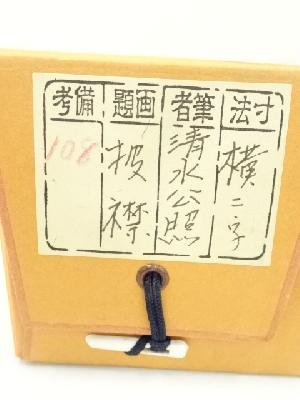 寸法
横二字
筆者
清水公照
画題
披襟
備考
108